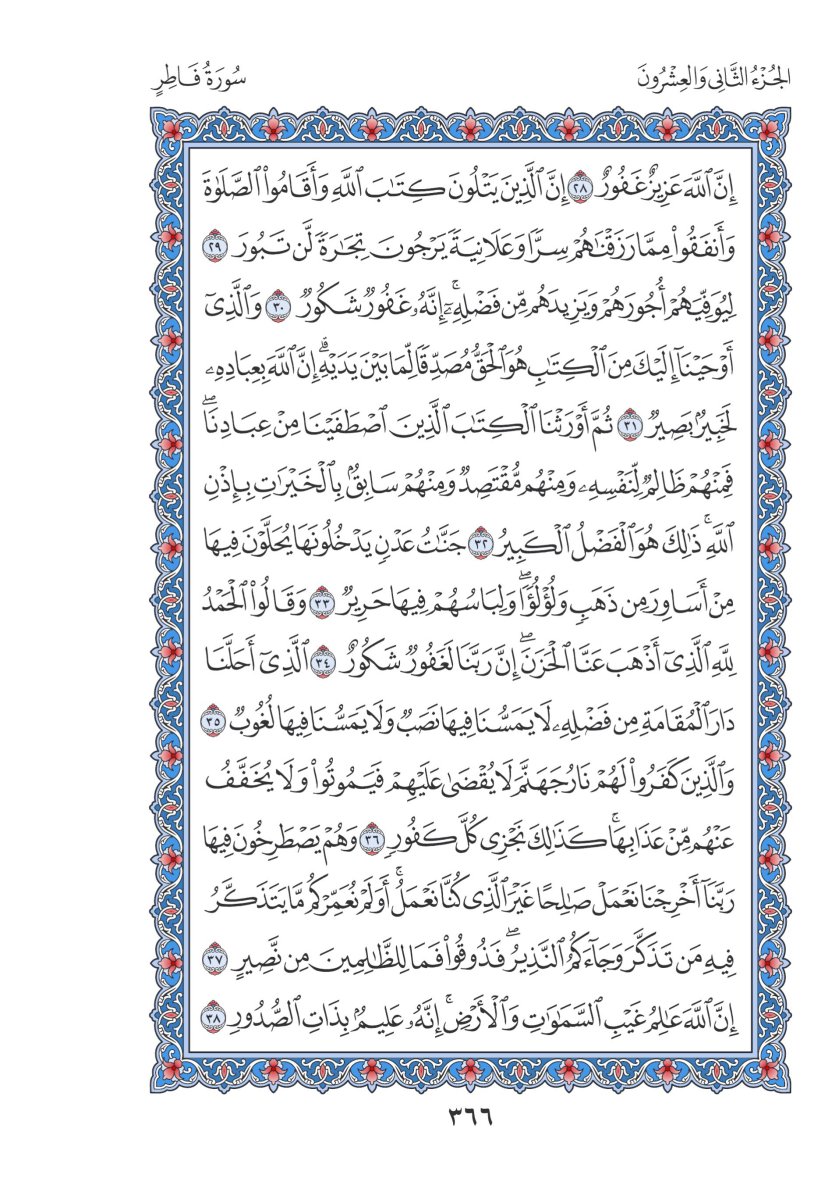 الجُزْءُ الثَّانِي وَالعِشْرُونَ
سُورَةُ فَاطِرٍ
إِنَّ ٱللَّهَ عَزِيزٌ غَفُورٌ ٢٨ إِنَّ ٱلَّذِينَ يَتْلُونَ كِتَٰبَ ٱللَّهِ وَأَقَامُوا۟ ٱلصَّلَوٰةَ
وَأَنفَقُوا۟ مِمَّا رَزَقْنَٰهُمْ سِرًّا وَعَلَانِيَةً يَرْجُونَ تِجَٰرَةً لَّن تَبُورَ ٢٩
لِيُوَفِّيَهُمْ أُجُورَهُمْ وَيَزِيدَهُم مِّن فَضْلِهِۦٓۚ إِنَّهُۥ غَفُورٌ شَكُورٌ ٣٠ وَٱلَّذِىٓ
أَوْحَيْنَآ إِلَيْكَ مِنَ ٱلْكِتَٰبِ هُوَ ٱلْحَقُّ مُصَدِّقًا لِّمَا بَيْنَ يَدَيْهِۗ إِنَّ ٱللَّهَ بِعِبَادِهِۦ
لَخَبِيرٌۢ بَصِيرٌ ٣١ ثُمَّ أَوْرَثْنَا ٱلْكِتَٰبَ ٱلَّذِينَ ٱصْطَفَيْنَا مِنْ عِبَادِنَاۖ
فَمِنْهُمْ ظَالِمٌ لِّنَفْسِهِۦ وَمِنْهُم مُّقْتَصِدٌ وَمِنْهُمْ سَابِقٌۢ بِٱلْخَيْرَٰتِ بِإِذْنِ
ٱللَّهِۚ ذَٰلِكَ هُوَ ٱلْفَضْلُ ٱلْكَبِيرُ ٣٢ جَنَّٰتُ عَدْنٍ يَدْخُلُونَهَا يُحَلَّوْنَ فِيهَا
مِنْ أَسَاوِرَ مِن ذَهَبٍ وَلُؤْلُؤًاۖ وَلِبَاسُهُمْ فِيهَا حَرِيرٌ ٣٣ وَقَالُوا۟ ٱلْحَمْدُ
لِلَّهِ ٱلَّذِىٓ أَذْهَبَ عَنَّا ٱلْحَزَنَۖ إِنَّ رَبَّنَا لَغَفُورٌ شَكُورٌ ٣٤ ٱلَّذِىٓ أَحَلَّنَا
دَارَ ٱلْمُقَامَةِ مِن فَضْلِهِۦ لَا يَمَسُّنَا فِيهَا نَصَبٌ وَلَا يَمَسُّنَا فِيهَا لُغُوبٌ ٣٥
وَٱلَّذِينَ كَفَرُوا۟ لَهُمْ نَارُ جَهَنَّمَ لَا يُقْضَىٰ عَلَيْهِمْ فَيَمُوتُوا۟ وَلَا يُخَفَّفُ
عَنْهُم مِّنْ عَذَابِهَاۚ كَذَٰلِكَ نَجْزِى كُلَّ كَفُورٍ ٣٦ وَهُمْ يَصْطَرِخُونَ فِيهَا
رَبَّنَآ أَخْرِجْنَا نَعْمَلْ صَٰلِحًا غَيْرَ ٱلَّذِى كُنَّا نَعْمَلُۚ أَوَلَمْ نُعَمِّرْكُم مَّا يَتَذَكَّرُ
فِيهِ مَن تَذَكَّرَ وَجَآءَكُمُ ٱلنَّذِيرُۖ فَذُوقُوا۟ فَمَا لِلظَّٰلِمِينَ مِن نَّصِيرٍ ٣٧
إِنَّ ٱللَّهَ عَٰلِمُ غَيْبِ ٱلسَّمَٰوَٰتِ وَٱلْأَرْضِۚ إِنَّهُۥ عَلِيمٌۢ بِذَاتِ ٱلصُّدُورِ ٣٨
٣٦٦